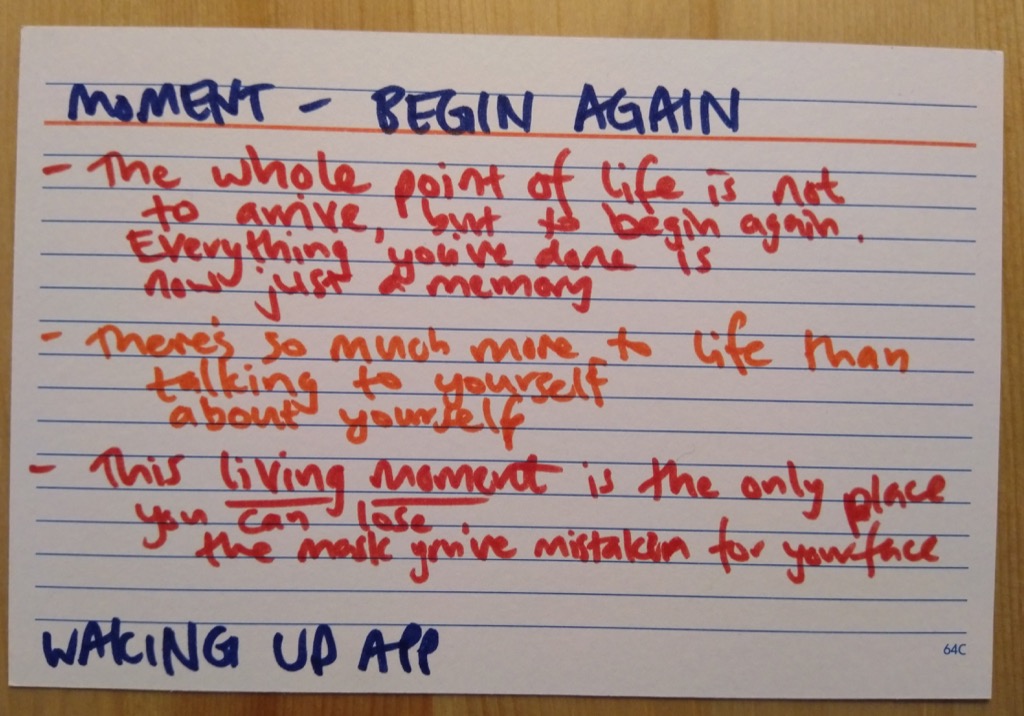 MOMENT - BEGIN AGAIN
- The whole point of life is not
to arrive, but to begin again.
Everything you've done is
now just a memory
- There's so much more to life than
talking to yourself
about yourself
- This living moment is the only place
you can lose.
the mask you've mistaken for your face
WAKING UP APP
64C